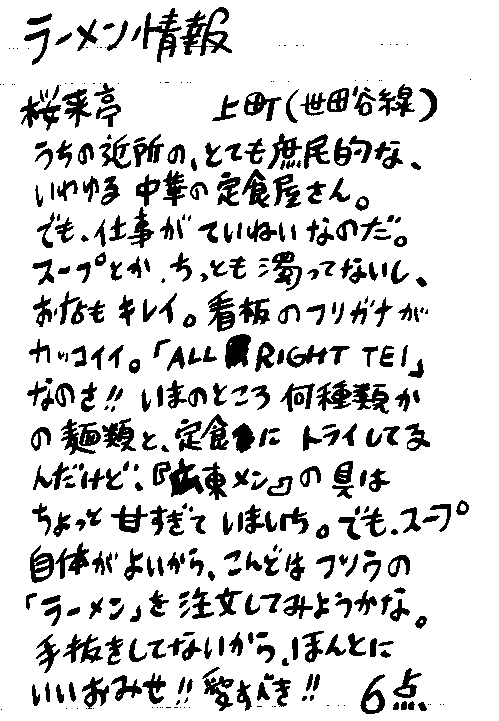 ラーメン情報
桜来亭 上町(世田谷線)
うちの近所の、とても庶民的な、
いわゆる中華の定食屋さん。
でも、仕事がていねいなのだ。
スープとか、ちっとも濁ってないし、
おなもキレイ。看板のフリガナが
カッコイイ。「ALL RIGHT TEI」
なのさ!! いまのところ何種類か
の麺類と、定食にトライしてる
んだけど、『広東メン』の具は
ちょっと甘すぎていまいち。でも、スープ
自体がよいから、こんどはフツウの
「ラーメン」を注文してみようかな。
手抜きしてないから、ほんとに
いいおみせ!! 愛すべき!! 6点、